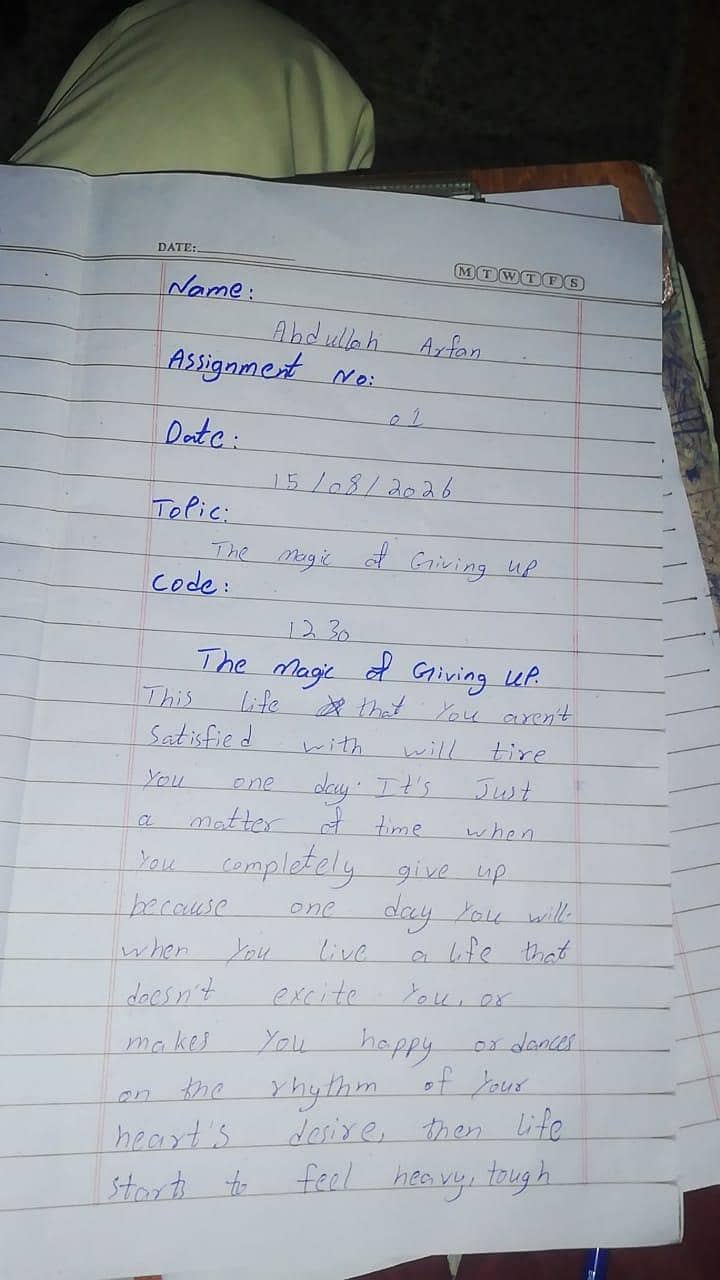 DATE:
M T W T F S
Name:
Abdullah Arfan
Assignment No:
01
Date:
15/08/2026
Topic:
The magic of Giving up
Code:
1230
The Magic of Giving UP.
This life that You aren't
Satisfied with will tire
You one day. It's Just
a matter of time when
You completely give up
because one day You will.
when You live a life that
doesn't excite You, or
makes You happy or dances
on the rhythm of Your
heart's desire, then life
starts to feel heavy, tough